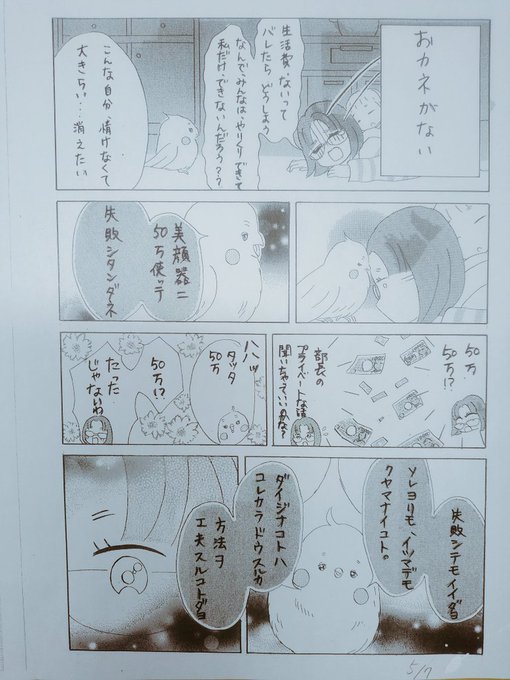 おカネがない
生活費、ないって
バレたら どうしよう
なんで、みんなは、やりくりできて
私だけ、できないんだろう？？
こんな自分、情けなくて
大きらい…消えたい
美顔器ニ
50万使ッテ
失敗シタンダネ
50万
50万!?
部長の
プライベートな話
聞いちゃっていいかな？
ハハッ
タッタ
50万
50万!?
たった…
じゃないわ
失敗シテモイイダヨ
ソレヨリモ、イツマデモ
クヤマナイコトの
ダイジナコトハ
コレカラドウスルカ
方法ヲ
工夫スルコトダヨ
5/7